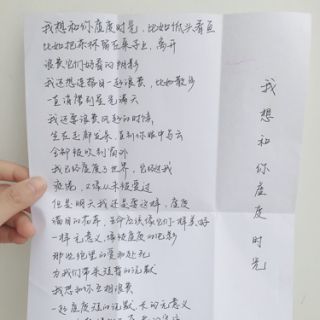 我想和你虚度时光，比如低头看鱼
比如把茶杯留在桌子上，离开
浪费它们好看的阴影
我还想连落日一起浪费，比如散步
一直消磨到星光满天
我还要浪费风起的时候
坐在走廊发呆，直到你眼中乌云
全部被吹到窗外
我已经虚度了世界，它经过我
疲倦，又像从未被爱过
但是明天我还是要这样，虚度
满目的花草，生命应该像它们一样美好
一样无意义，像被虚度的电影
那些绝望的爱和赴死
为我们带来短暂的沉默
我想和你互相浪费
一起虚度短的沉默，长的无意义
我想和你虚度时光